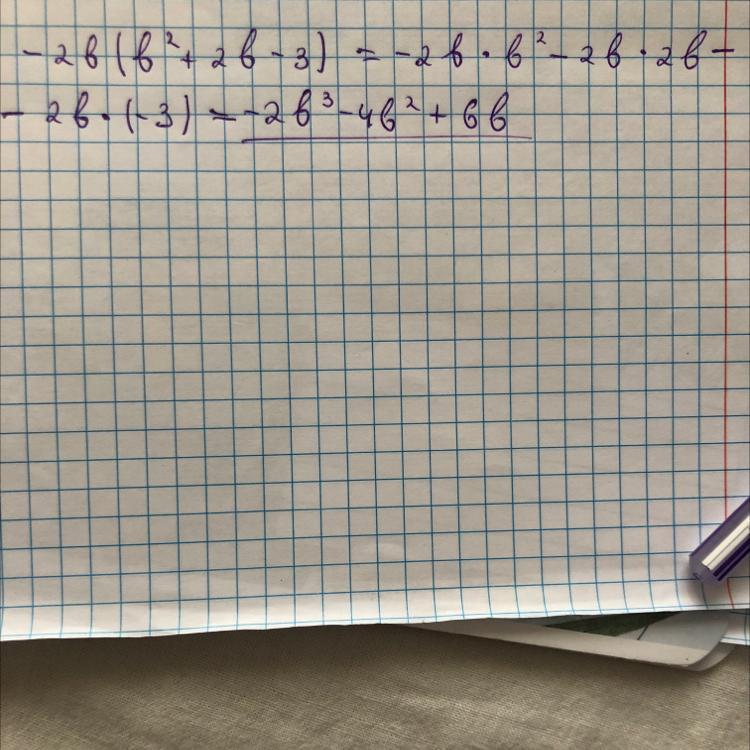 -2b(b² + 2b - 3) = -2b · b² - 2b · 2b -
- 2b · (-3) = -2b³ - 4b² + 6b